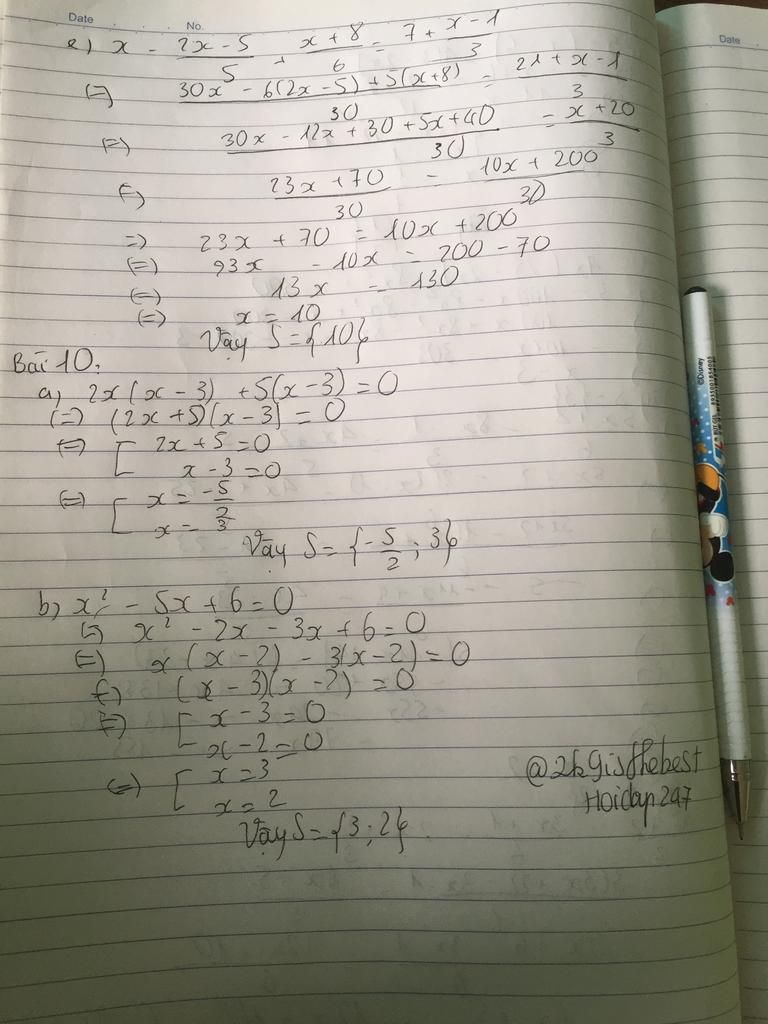 Date No.
e) x - \frac{2x-5}{5} + \frac{x+8}{6} = 7 + \frac{x-1}{3}
(=) \frac{30x - 6(2x-5) + 5(x+8)}{30} = \frac{21+x-1}{3}
(=) \frac{30x - 12x + 30 + 5x + 40}{30} = \frac{x+20}{3}
(=) \frac{23x+70}{30} = \frac{10x+200}{30}
=) 23x + 70 = 10x + 200
(=) 23x - 10x = 200 - 70
(=) 13x = 130
(=) x = 10
Vậy S = {10}
Bài 10:
a) 2x(x-3) + 5(x-3) = 0
(=) (2x+5)(x-3) = 0
(=) [ 2x+5 = 0
x-3 = 0
(=) [ x = \frac{-5}{2}
x = 3
Vậy S = {-\frac{5}{2}; 3}
b) x² - 5x + 6 = 0
(=) x² - 2x - 3x + 6 = 0
(=) x(x-2) - 3(x-2) = 0
(=) (x-3)(x-2) = 0
(=) [ x-3 = 0
x-2 = 0
(=) [ x = 3
x = 2
Vậy S = {3; 2}
@2k9isthebest
Hoidap247
Date
©Disney